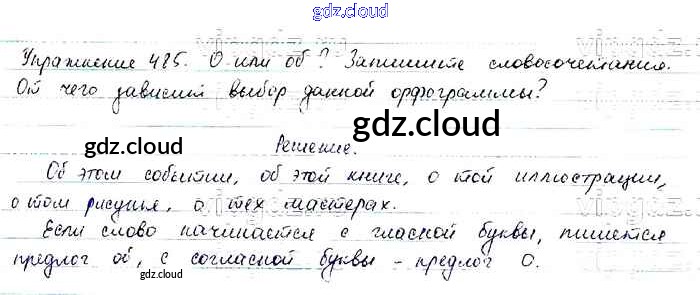 gdz.cloud
Упражнение 485. О или об? Запишите словосочетания.
От чего зависит выбор данной орфограммы?
gdz.cloud
gdz.cloud
Решение.
Об этом событии, об этой книге, о той иллюстрации,
о том рисунке, о тех мастерах.
Если слово начинается с гласной буквы, пишется
предлог об, с согласной буквы - предлог О.
gdz.cloud
gdz.cloud